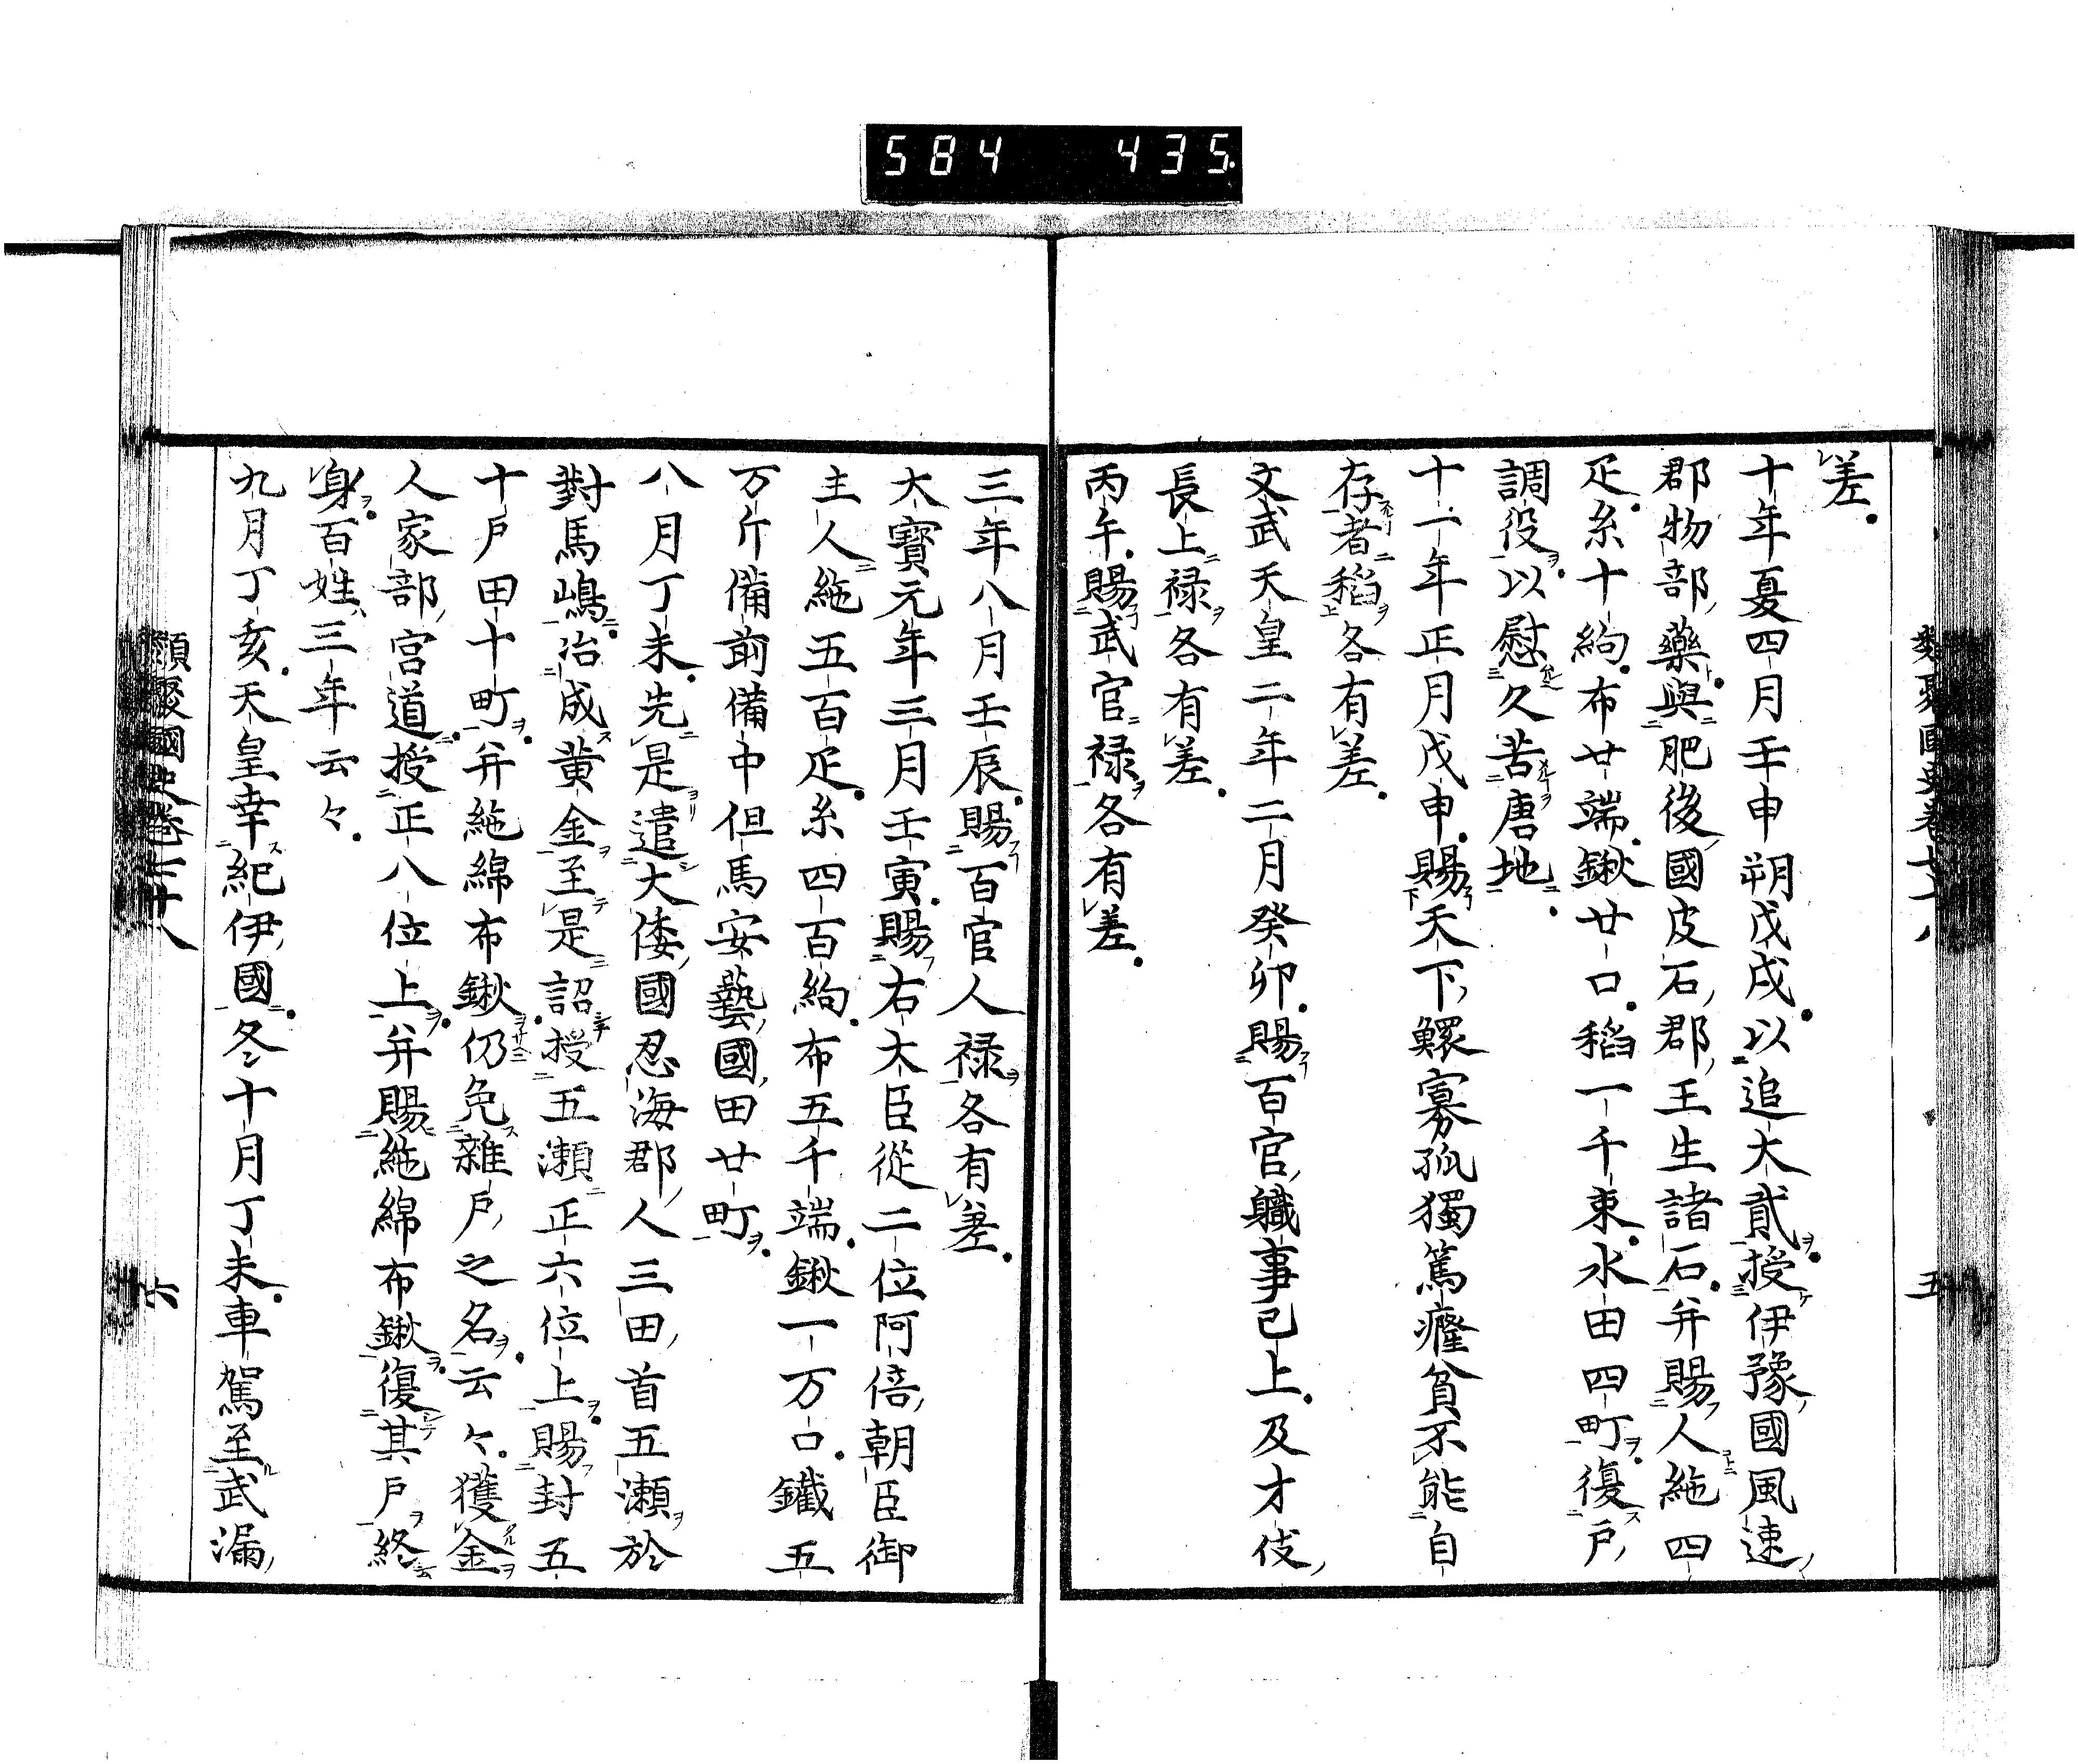 584 435
差
十年夏四月壬申朔戊戌以追大貳授伊豫國風速
郡物部藥與肥後國皮石郡王生諸石并賜人絁四
疋糸十絇布廿端鍬廿口稻一千束水田四町復戶
調役以慰久苦唐地
十一年正月戊申賜天下鰥寡孤獨篤癃貧不能自
存者稻各有差
文武天皇二年二月癸卯賜百官職事已上及才伎
長上祿各有差
丙午賜武官祿各有差
五
三年八月壬辰賜百官人祿各有差
大寶元年三月壬寅賜右大臣從二位阿倍朝臣御
主人絁五百疋糸四百絇布五千端鍬一万口鐵五
万斤備前備中但馬安藝國田廿町
八月丁未先是遣大倭國忍海郡人三田首五瀨於
對馬嶋冶成黄金至是詔授五瀨正六位上賜封五
十戶田十町并絁綿布鍬仍免雜戶之名云々獲金
人家部宮道授正八位上并賜絁綿布鍬復其戶終
身百姓三年云々
九月丁亥天皇幸紀伊國冬十月丁未車駕至武漏
類聚國史卷七十八
六